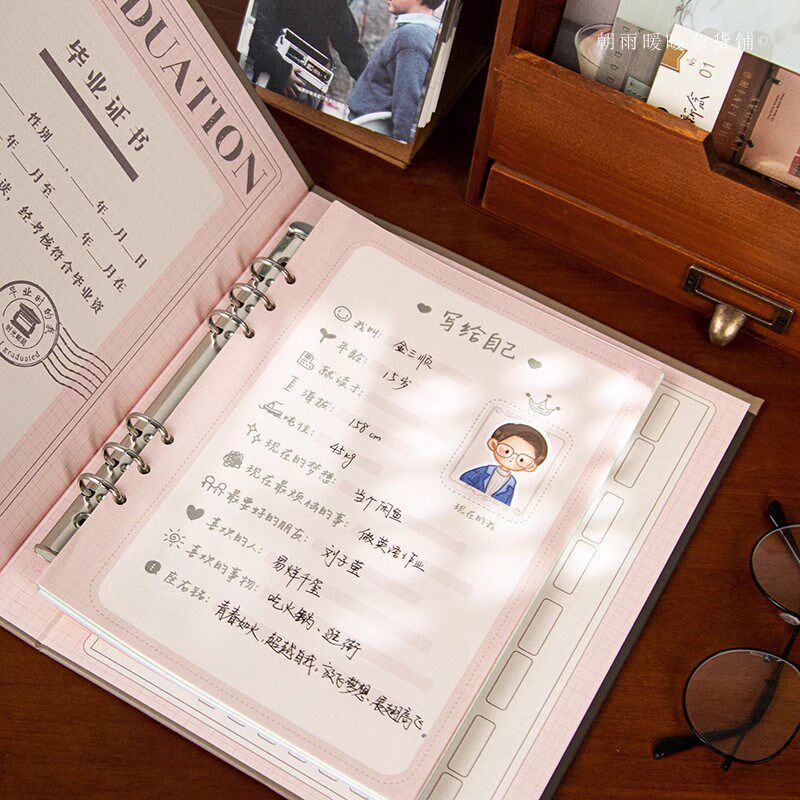 朝雨暖暖杂货铺©
DUATION
毕业证书
性别
年 月 日
年 月至 年 月在
读，经考核符合毕业资
毕业时的我
graduated
01
写给自己
我叫： 金三顺
年龄： 15岁
就读于：
海拔： 158cm
吨位： 45kg
现在的梦想： 当个闲鱼
现在最烦恼的事： 做英语作业
最要好的朋友： 刘子萱
喜欢的人： 易烊千玺
喜欢的事物： 吃火锅、逛街
座右铭： 青春如火，超越自我，放飞梦想，展翅高飞。
现在的我